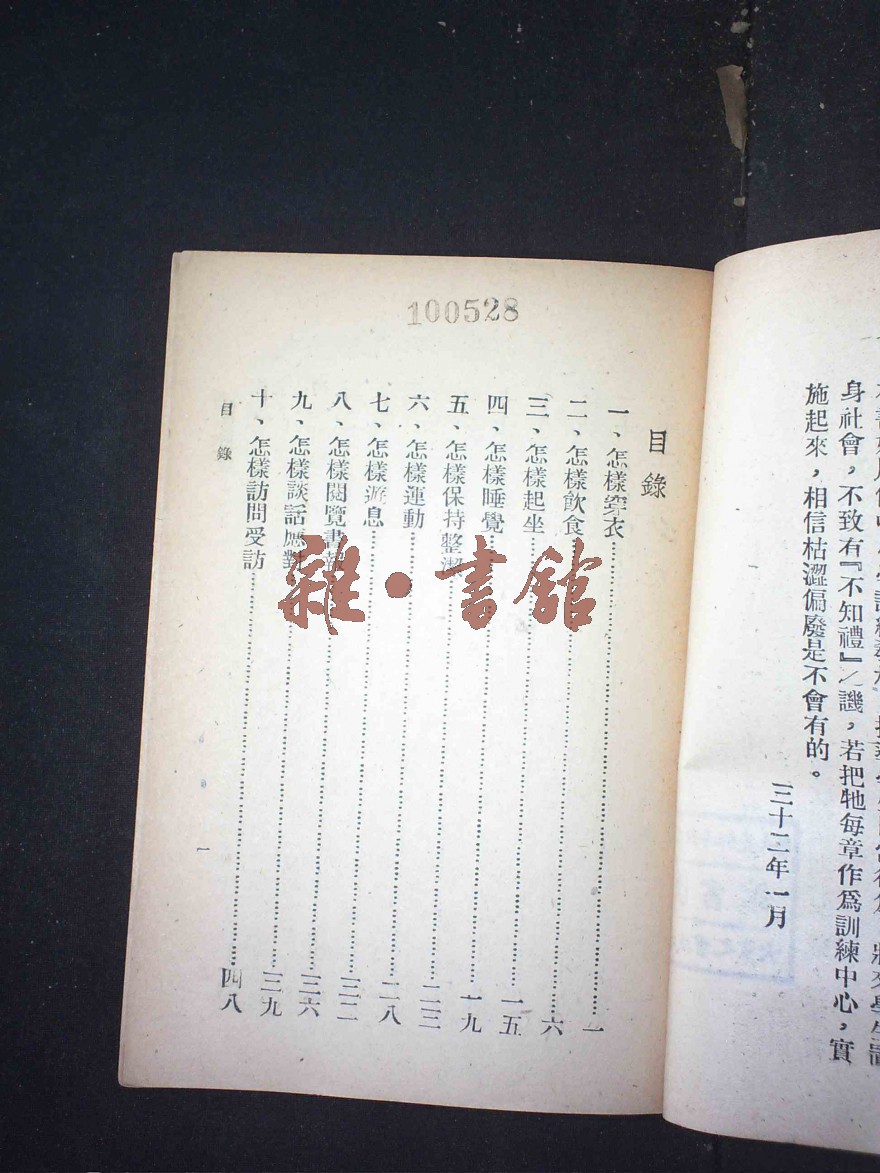 身社會，不致有『不知禮』之譏，若把牠每章作爲訓練中心，實
施起來，相信枯澀偏廢是不會有的。
三十二年一月
100528
目錄
一、怎樣穿衣……一
二、怎樣飲食……六
三、怎樣起坐……一五
四、怎樣睡覺……一九
五、怎樣保持整潔……二三
六、怎樣運動……二八
七、怎樣遊息……三二
八、怎樣閱覽書報……三六
九、怎樣談話應對……三九
十、怎樣訪問受訪……四八
目錄
一
雜·書館